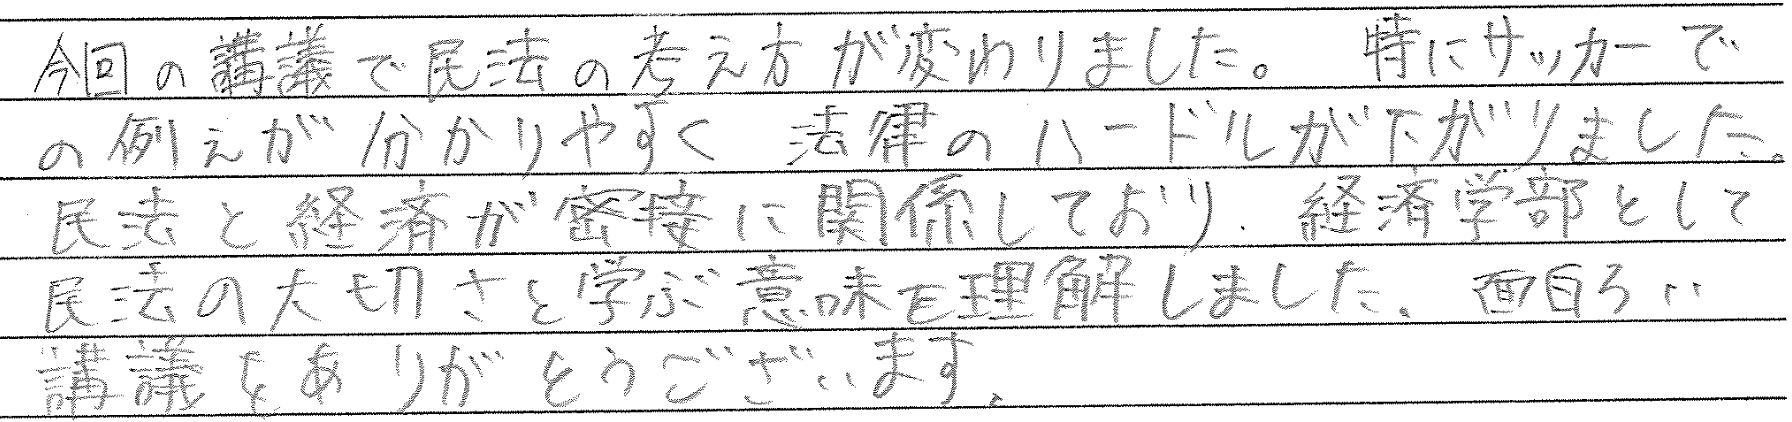 今回の講義で民法の考え方が変わりました。特にサッカーで
の例えが分かりやすく法律のハードルが下がりました。
民法と経済が密接に関係しており、経済学部として
民法の大切さと学ぶ意味を理解しました。面白ろい
講義をありがとうございます。